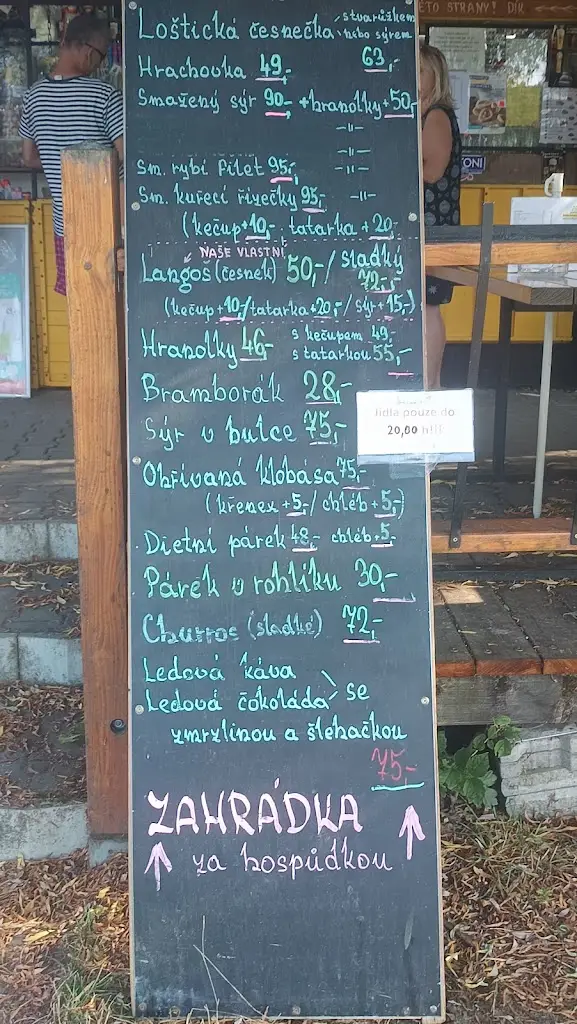 ÉTO STRANY! DÍK
Loštická česnečka s tvarůžkem
nebo sýrem
63,-
Hrachovka 49,-
Smažený sýr 90,- + hranolky + 50,-
-||-
Sm. rybí filet 95,- -||-
Sm. kuřecí řízečky 95,- -||-
(kečup + 10,- tatarka + 20,-
NAŠE VLASTNÍ
Langoš (česnek) 50,-/ sladký
72,-
(kečup + 10,-/tatarka + 20,-/ Sýr + 15,-)
Hranolky 46,- s kečupem 49,-
s tatarkou 55,-
Bramborák 28,-
Sýr v bulce 75,-
Jídla pouze do
20,00 h!!!
Ohřívaná klobása 75,-
(křenex + 5,-/ chléb + 5,-)
Dietní párek 48,- chléb + 5,-
Párek v rohlíku 30,-
Churros (sladké) 72,-
Ledová káva
Ledová čokoláda se
zmrzlinou a šlehačkou
75,-
ZAHRÁDKA
za hospůdkou